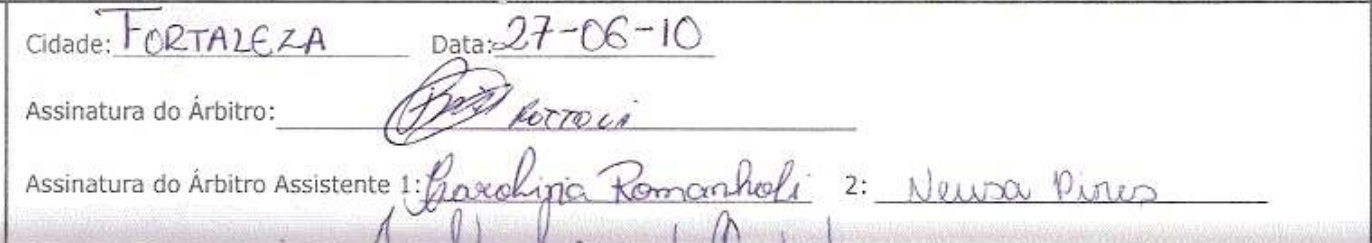 Cidade: FORTALEZA Data: 27-06-10
Assinatura do Árbitro:
Assinatura do Árbitro Assistente 1: Carolina Romanholi 2: Neusa Pires